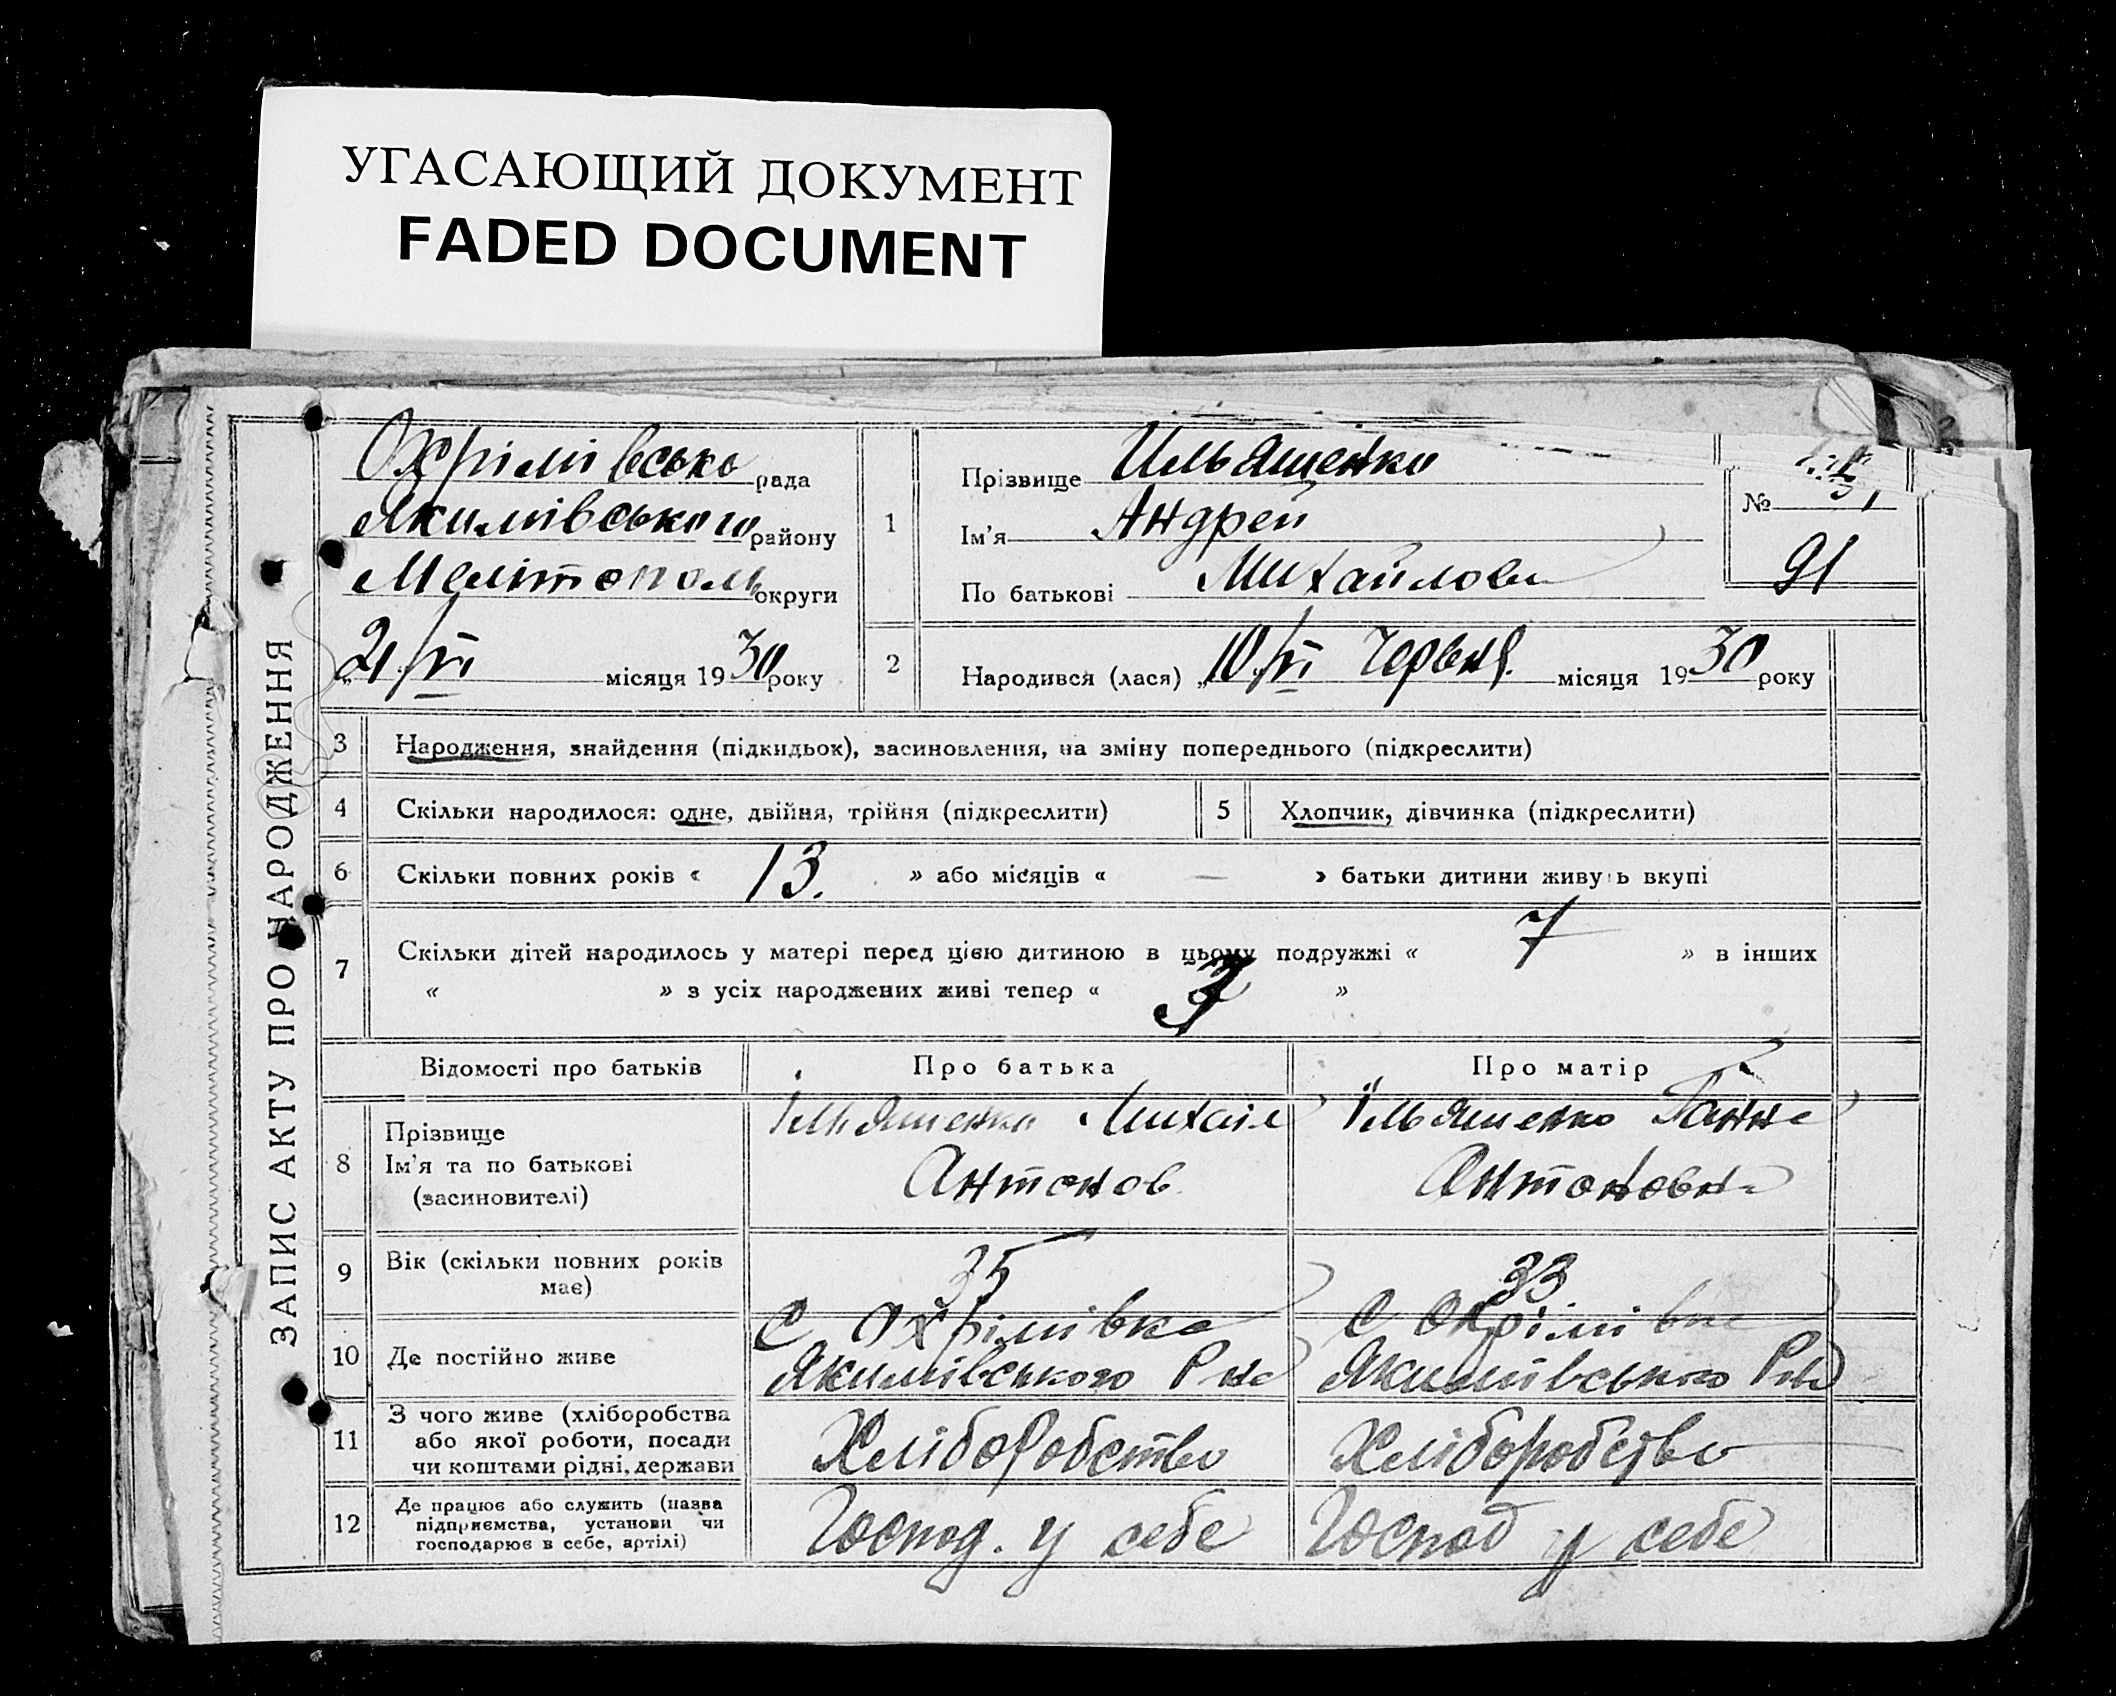 УГАСАЮЩИЙ ДОКУМЕНТ
FADED DOCUMENT
ЗАПИС АКТУ ПРО НАРОДЖЕННЯ
Охрімівсько рада
Якимівського району
Мелітополь округи
„21/VI місяця 1930 року
1
Прізвище Ильяшенко
Ім'я Андрей
По батькові Михайлови
№
91
2
Народився (лася) „10/VI Червня. місяця 1930 року
3 Народження, знайдення (підкидьок), засиновлення, на зміну попереднього (підкреслити)
4 Скільки народилося: одне, двійня, трійня (підкреслити) 5 Хлопчик, дівчинка (підкреслити)
6 Скільки повних років « 13. » або місяців « — » батьки дитини живуть вкупі
7 Скільки дітей народилось у матері перед цією дитиною в цьому подружжі « 7 » в інших
« » з усіх народжених живі тепер « »
Відомості про батьків Про батька Про матір
8 Прізвище
Ім'я та по батькові
(засиновителі)
Ільяшенко Михаіл
Антонов
Їльяшенко Ганна
Антоновна
9 Вік (скільки повних років
має)
35
33
10 Де постійно живе
С Охрімівка
Якимівського Рна
С Охрімівка
Якимівського Рна
11 З чого живе (хліборобства
або якої роботи, посади
чи коштами рідні, держави
Хліборобство
Хліборобство
12 Де працює або служить (назва
підприємства, установи чи
господарює в себе, артілі)
Господ. у себе
Господ у себе